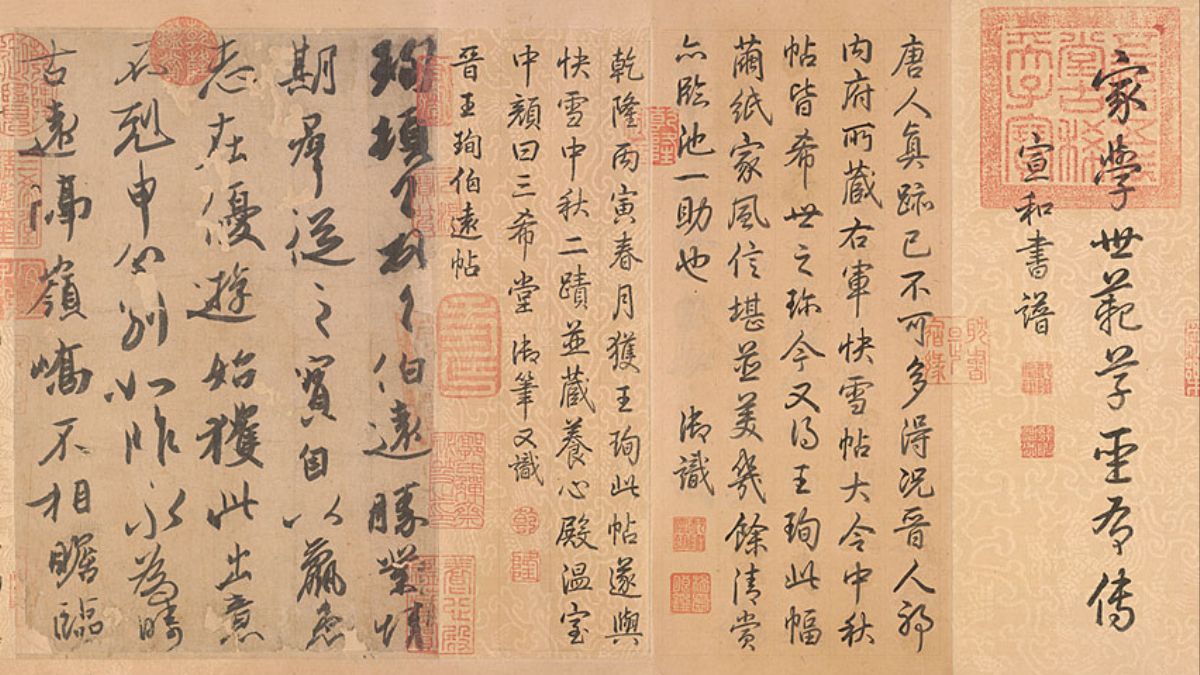 家學世範草聖有傳
宣和書譜
五福五代堂古稀天子寶
唐人真跡已不可多得況晉人耶
內府所藏右軍快雪帖大令中秋
帖皆希世之珍今又得王珣此幅
繭紙家風信堪並美幾餘清賞
亦臨池一助也 御識
乾隆丙寅春月獲王珣此帖遂與
快雪中秋二蹟並藏養心殿溫室
中顏曰三希堂 御筆又識
乾隆
晉王珣伯遠帖
珣頓首頓首伯遠勝業情
期群從之寶自以羸患
志在優遊始獲此出意
不剋申分別如昨永為疇
古遠隔嶺嶠不相瞻臨